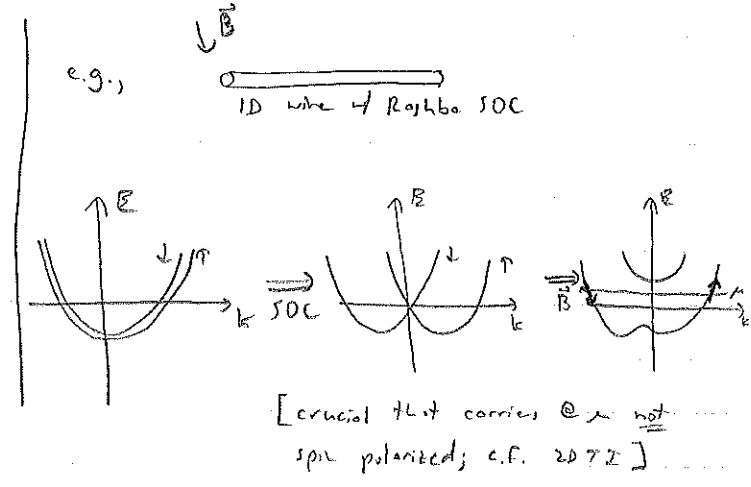 B
e.g.,
1D wire w/ Rashba SOC
E E E
↓ ↑ ↓ ↑
⇒ ⇒ μ
k SOC k B k
[crucial that carriers @ μ not
spin polarized; c.f. 2D TI]